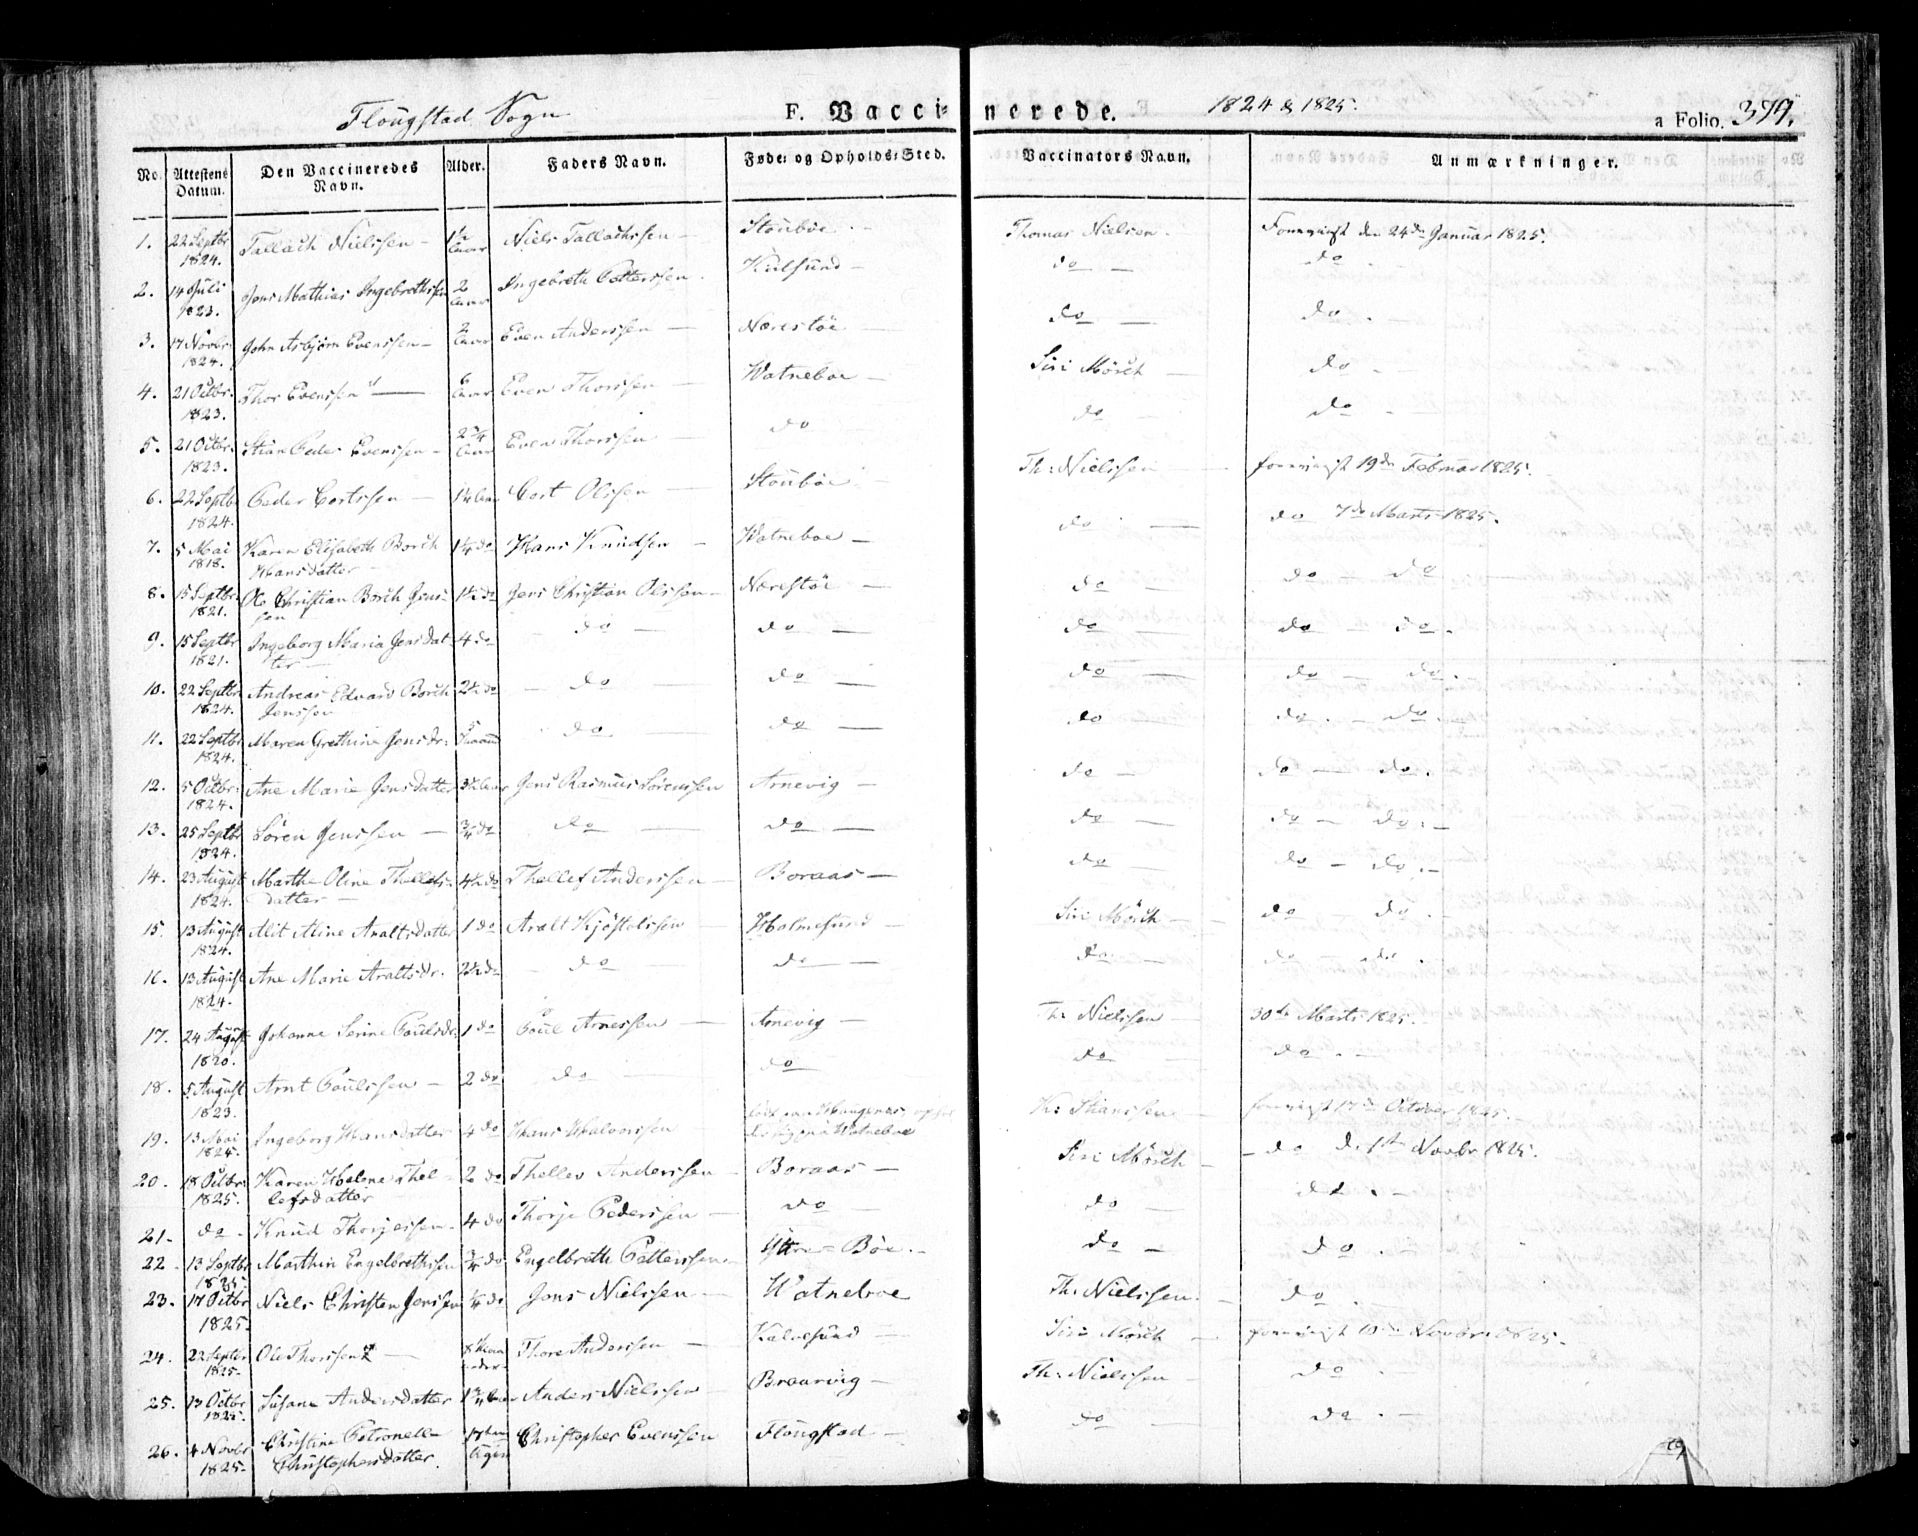 Flougstad Sogn F. Vaccinerede. 1824 & 1825. a Folio. 379.
No. Attestens Datum. Den Vaccineredes Navn. Alder. Faders Navn. Føde- og Opholds-Sted. Vaccinators Navn. Anmærkninger.
1. 22 Septbr 1824. Tallach Nielssen — 1½ Aar Niels Tallachssen — Stoubøe — Thomas Nielsen. Foreviist den 24de Januar 1825.
2. 14 Juli 1823. Jens Mathias Ingebrethssen 2 Aar Ingebreth Pettersen. — do — do
3. 17 Novbr. 1824. John Asbjørn Evenssen — 2 Aar Even Anderssen — Narestöe — do — do. —
4. 21 Octbr. 1823. Thor Evenssen — 6 Aar Even Thorssen — Watneboe — Siri Mörch — do. —
5. 21 Octbr. 1823. Stian Peder Evenssen — 2¾ Aar Even Thorssen — do do — do. —
6. 22 Septbr 1824. Peder Cortssen — 1¼ Aar Cort Olssen — Stoubøe — Th: Nielssen — foreviist 19de Februar 1825.
7. 5 Mai 1818. Karen Elisabeth Borch Hansdatter — 1¼ do Hans Knudsen — Watneboe — do — do 7de Marts 1825.
8. 15 Septbr. 1821. Ole Christian Borch Jenssen 1½ do Jens Christian Olssen — Narestöe — do — do — do
9. 15 Septbr 1821. Ingeborg Maria Jensdatter — 4 do — do — do — do — do — do.
10. 22 Septbr. 1824. Andreas Edvard Borch Jenssen 2½ do — do — do — do — do — do.
11. 22 Septbr 1824. Maren Grethine Jensdr. 5 — do — do — do do. — do. —
12. 5 Octbr. 1824. Ane Marie Jensdatter 3½ Aar Jens Rasmus Sörenssen Arnevig — do — do — do.
13. 25 Septbr 1824. Sören Jenssen — ¾ do — do — do — do — do — do. —
14. 23 August 1824. Marthe Oline Thellefsdatter — 4½ do Thellef Anderssen — Boraas — do — do — do. —
15. 13 August 1824. Alit Aline Araltsdatter 1 do Aralt Kjöstelssen — Holmesund — Siri Mörch — do do. —
16. 13 August 1824. Ane Marie Araltsdr. 2½ do — do — do — do — do — do.
17. 24 August 1820. Johanne Serine Poulsdr. 1 do Poul Arnessen — Arnevig — Th: Nielssen — 30te Marts 1825.
18. 5 August 1823. Arnt Poulssen — 2 do do — do do — do. —
19. 13 Mai 1825. Ingeborg Hansdatter 4 do Hans Halvorssen — Watneboe K: Stianssen — foreviist 17de October 1825.
20. 18 Octbr. 1825. Karen Helene Thellefsdatter 2 do Thellev Anderssen — Boraas — Siri Mörch — do d. 1ste Novbr 1825.
21. do. Knud Thorjessen. 4 do Thorje Pederssen — do — do — do. —
22. 13 Septbr 1825. Marthin Engelbrethssen ¾ do Engelbreth Petterssen. Yttre Böe. — do — do. —
23. 17 Octbr 1825. Niels Christen Jenssen ¼ do Jens Nielssen. — Watneboe Th: Nielssen. — do.
24. 22 Septbr 1825. Ole Thorssen — 8 Maaneder Thore Anderssen — Kalvesund — Siri Mörch — foreviist 10de Novbr 1825.
25. 13 Octbr 1825. Susane Andersdatter 1¾ Aar Anders Nielssen Braarvig — Th: Nielssen — do. —
26. 4 Novbr 1825. Christine Petronelle Christophersdatter. Christopher Evenssen Flougstad — do — do. —